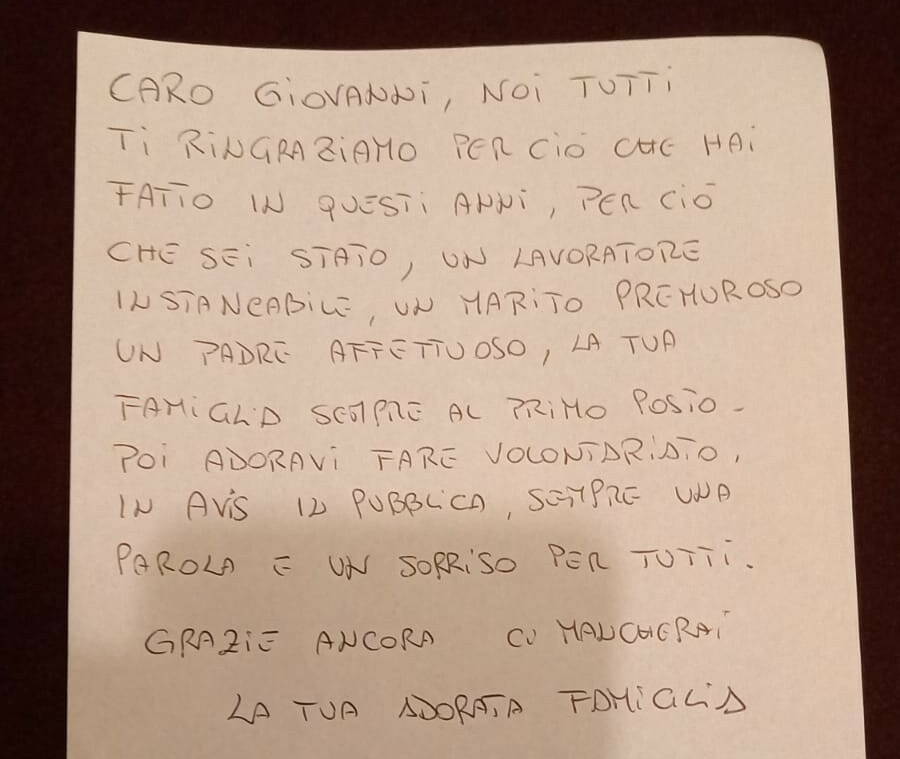 CARO GIOVANNI, NOI TUTTI
TI RINGRAZIAMO PER CIÒ CHE HAI
FATTO IN QUESTI ANNI, PER CIÒ
CHE SEI STATO, UN LAVORATORE
INSTANCABILE, UN MARITO PREMUROSO
UN PADRE AFFETTUOSO, LA TUA
FAMIGLIA SEMPRE AL PRIMO POSTO -
POI ADORAVI FARE VOLONTARIATO,
IN AVIS IN PUBBLICA, SEMPRE UNA
PAROLA E UN SORRISO PER TUTTI.
GRAZIE ANCORA CI MANCHERAI
LA TUA ADORATA FAMIGLIA